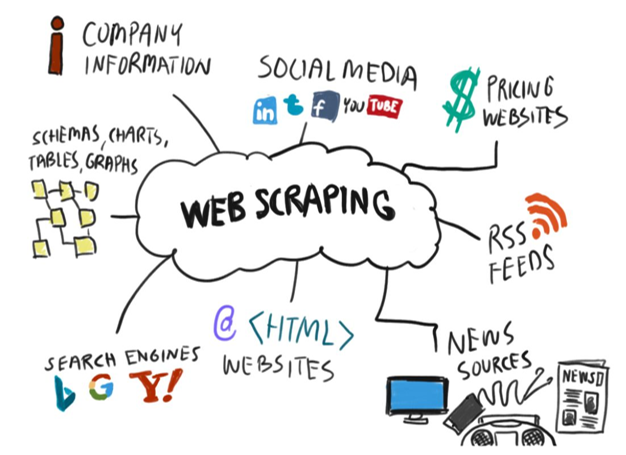 COMPANY
INFORMATION
SOCIAL MEDIA
in t f YOU TUBE
$ PRICING
WEBSITES
SCHEMAS, CHARTS,
TABLES, GRAPHS
WEB SCRAPING
RSS
FEEDS
@ <HTML>
WEBSITES
SEARCH ENGINES
b G Y!
NEWS
SOURCES
NEWS